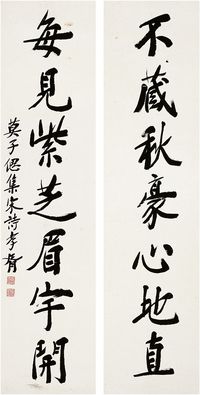 不藏秋豪心地直
每見紫芝眉宇開
莫子偲集宋詩孝胥